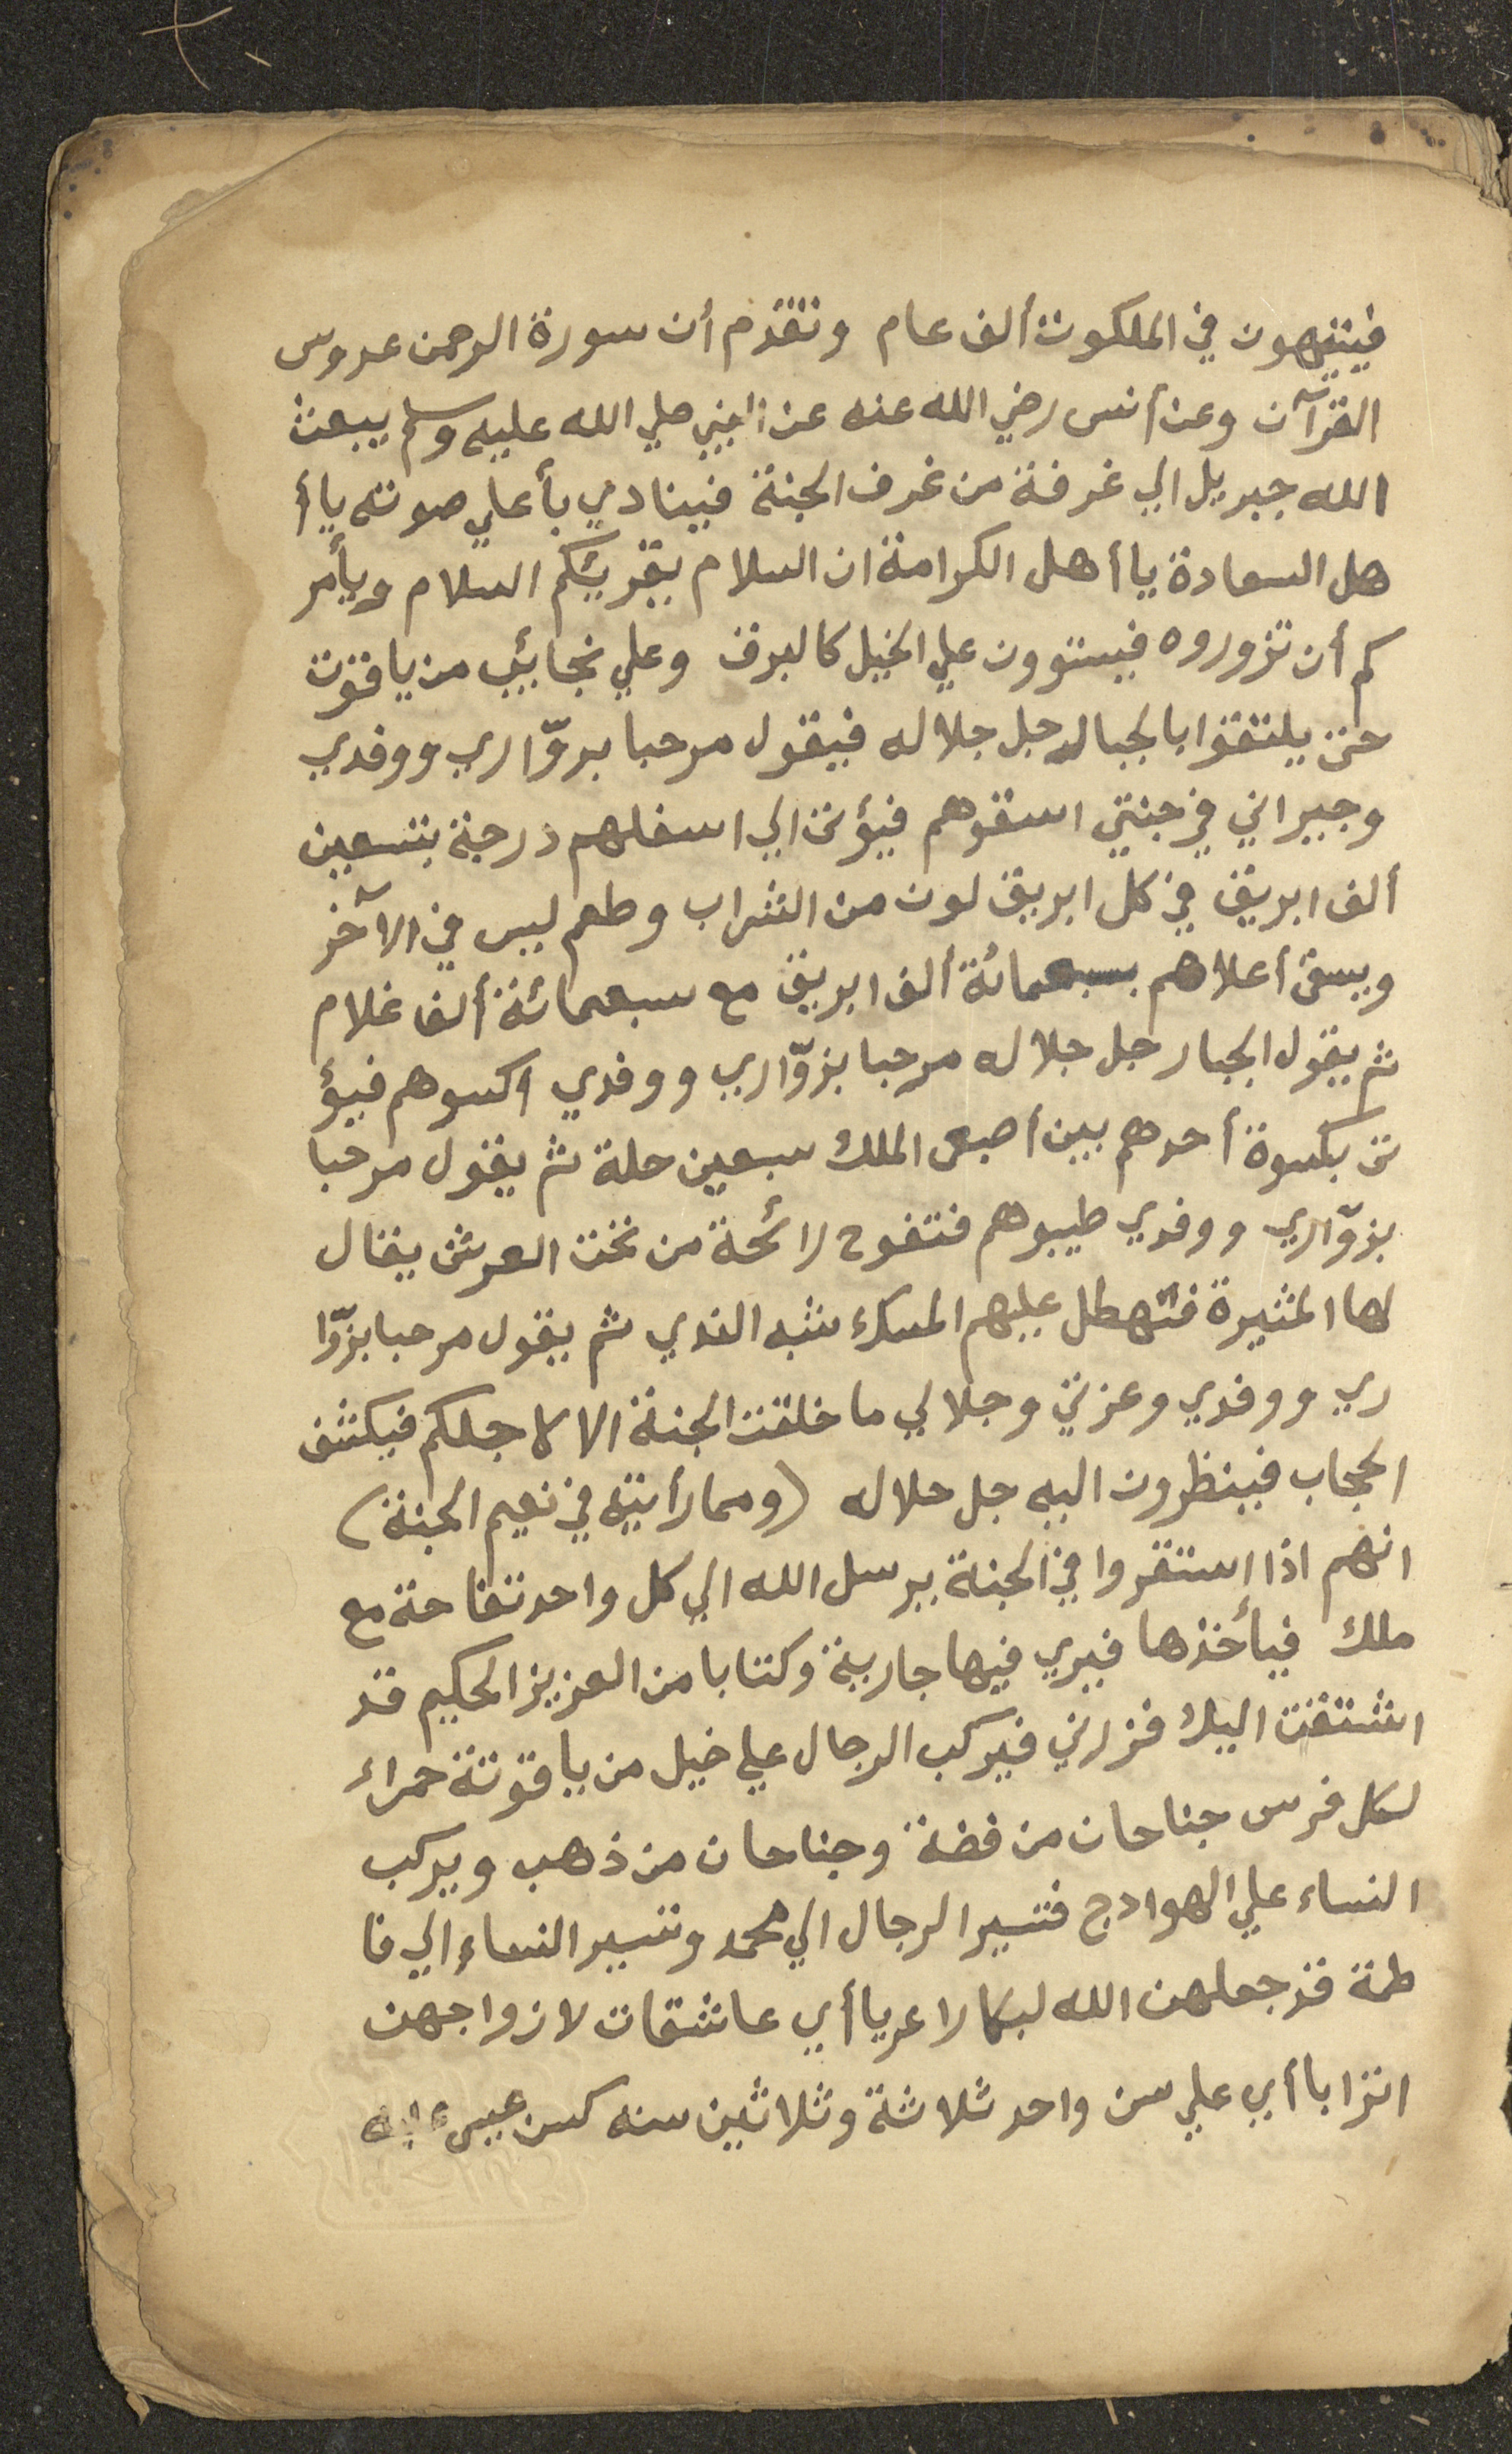 فيتيهون في الملكوت ألف عام وتقدم أن سورة الرحمن عروس
القرآن وعن أنس رضي الله عنه عن النبي صلي الله عليه وسلم يبعث
الله جبريل الي غرفة من غرف الجنة فينادي بأعلي صوته يا أ
هل السعادة يا أهل الكرامة ان السلام يقريئكم السلام ويأمر
كم أن تزوروه فيستوون علي الخيل كالبرق وعلي نجائب من ياقوت
حتى يلتقوا بالجبار جل جلاله فيقول مرحبا بروّاري ووفدي
وجيراني في جنتي اسقوهم فيؤتى الي اسفلهم درجة بتسعين
ألف ابريق في كل ابريق لون من الشراب وطعم ليس في الآخر
ويسقى أعلاهم بسبعمائة ألف ابريق مع سبعمائة ألف غلام
ثم يقول الجبار جل جلاله مرحبا بزوّاري ووفدي اكسوهم فيؤ
تى بكسوة أحدهم بين أصبعى الملك سبعين حلة ثم يقول مرحبا
بزوّاري ووفدي طيبوهم فتفوح رائحة من تحت العرش يقال
لها المثيرة فتهطل عليهم المسك شبه الندي ثم يقول مرحبا بزوّا
ري ووفدي وعزتي وجلالي ما خلقت الجنة الا لاجلكم فيكشف
الحجاب فينظرون اليه جل جلاله (ومما رأيته في نعيم الجنة)
انهم اذا استقروا في الجنة يرسل الله الي كل واحد تفاحة مع
ملك فيأخذها فيري فيها جارية وكتابا من العزيز الحكيم قد
اشتقت اليك فزرني فيركب الرجال علي خيل من ياقوتة حمراء
لكل فرس جناحان من فضة وجناحان من ذهب ويركب
النساء علي الهوادج فتسير الرجال الي محمد وتسير النساء الي فا
طمة قد جعلهن الله ابكارا عربا أي عاشقات لازواجهن
اترابا أي علي سن واحد ثلاثة وثلاثين سنه كسن عيسى عليه